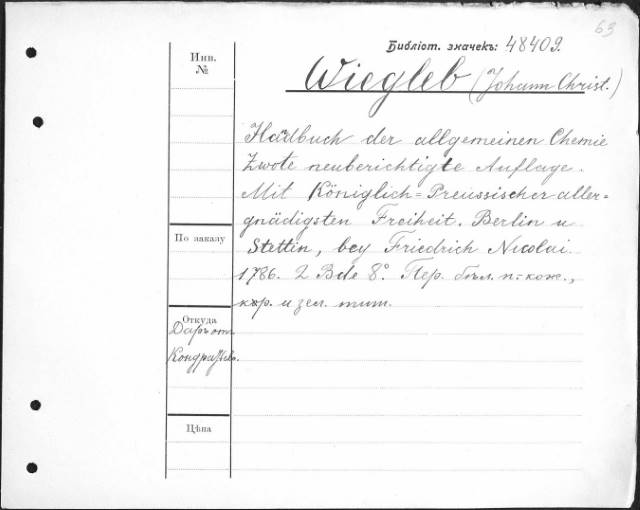 63
Библіот. значекъ: 48409.
Инв.
№
Wiegleb (Johann Christ.)
Handbuch der allgemeinen Chemie
Zwote neuberichtigte Auflage.
Mit Königlich=Preussischer aller=
gnädigsten Freiheit. Berlin u
Stettin, bey Friedrich Nicolai
1786. 2 Bde 8°. Пер. бѣл. п.-кож.,
кор. и зел. тит.
По заказу
Откуда
Даръ от
Цѣна